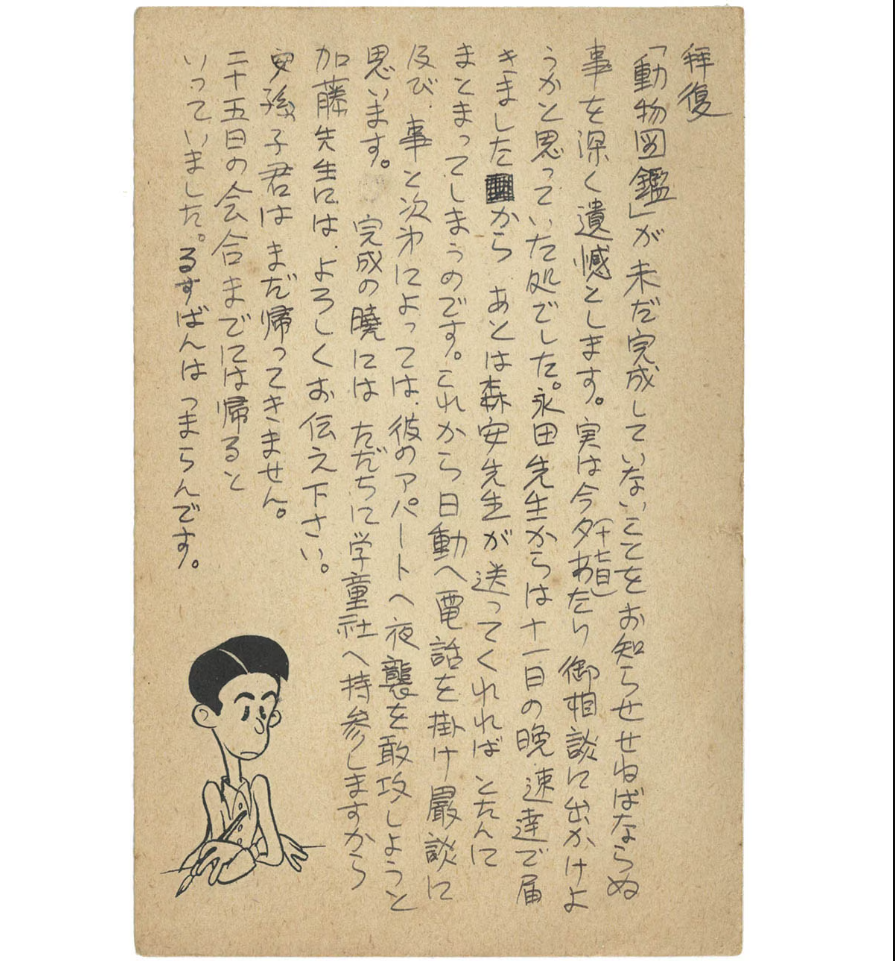 拝復
「動物図鑑」が未だ完成していないことをお知らせせねばならぬ
事を深く遺憾とします。実は今夕(十七日)あたり御相談に出かけよ
うかと思っていた処でした。永田先生からは十一日の晩速達で届
きましたから あとは森安先生が送ってくれれば とたんに
まとまってしまうのです。これから日動へ電話を掛け嚴談に
及び、事と次第によっては、彼のアパートへ夜襲を敢攻しようと
思います。 完成の曉には ただちに学童社へ持参しますから
加藤先生には、よろしくお伝え下さい。
安孫子君は まだ帰ってきません。
二十五日の会合までには帰ると
いっていました。るすばんは つまらんです。